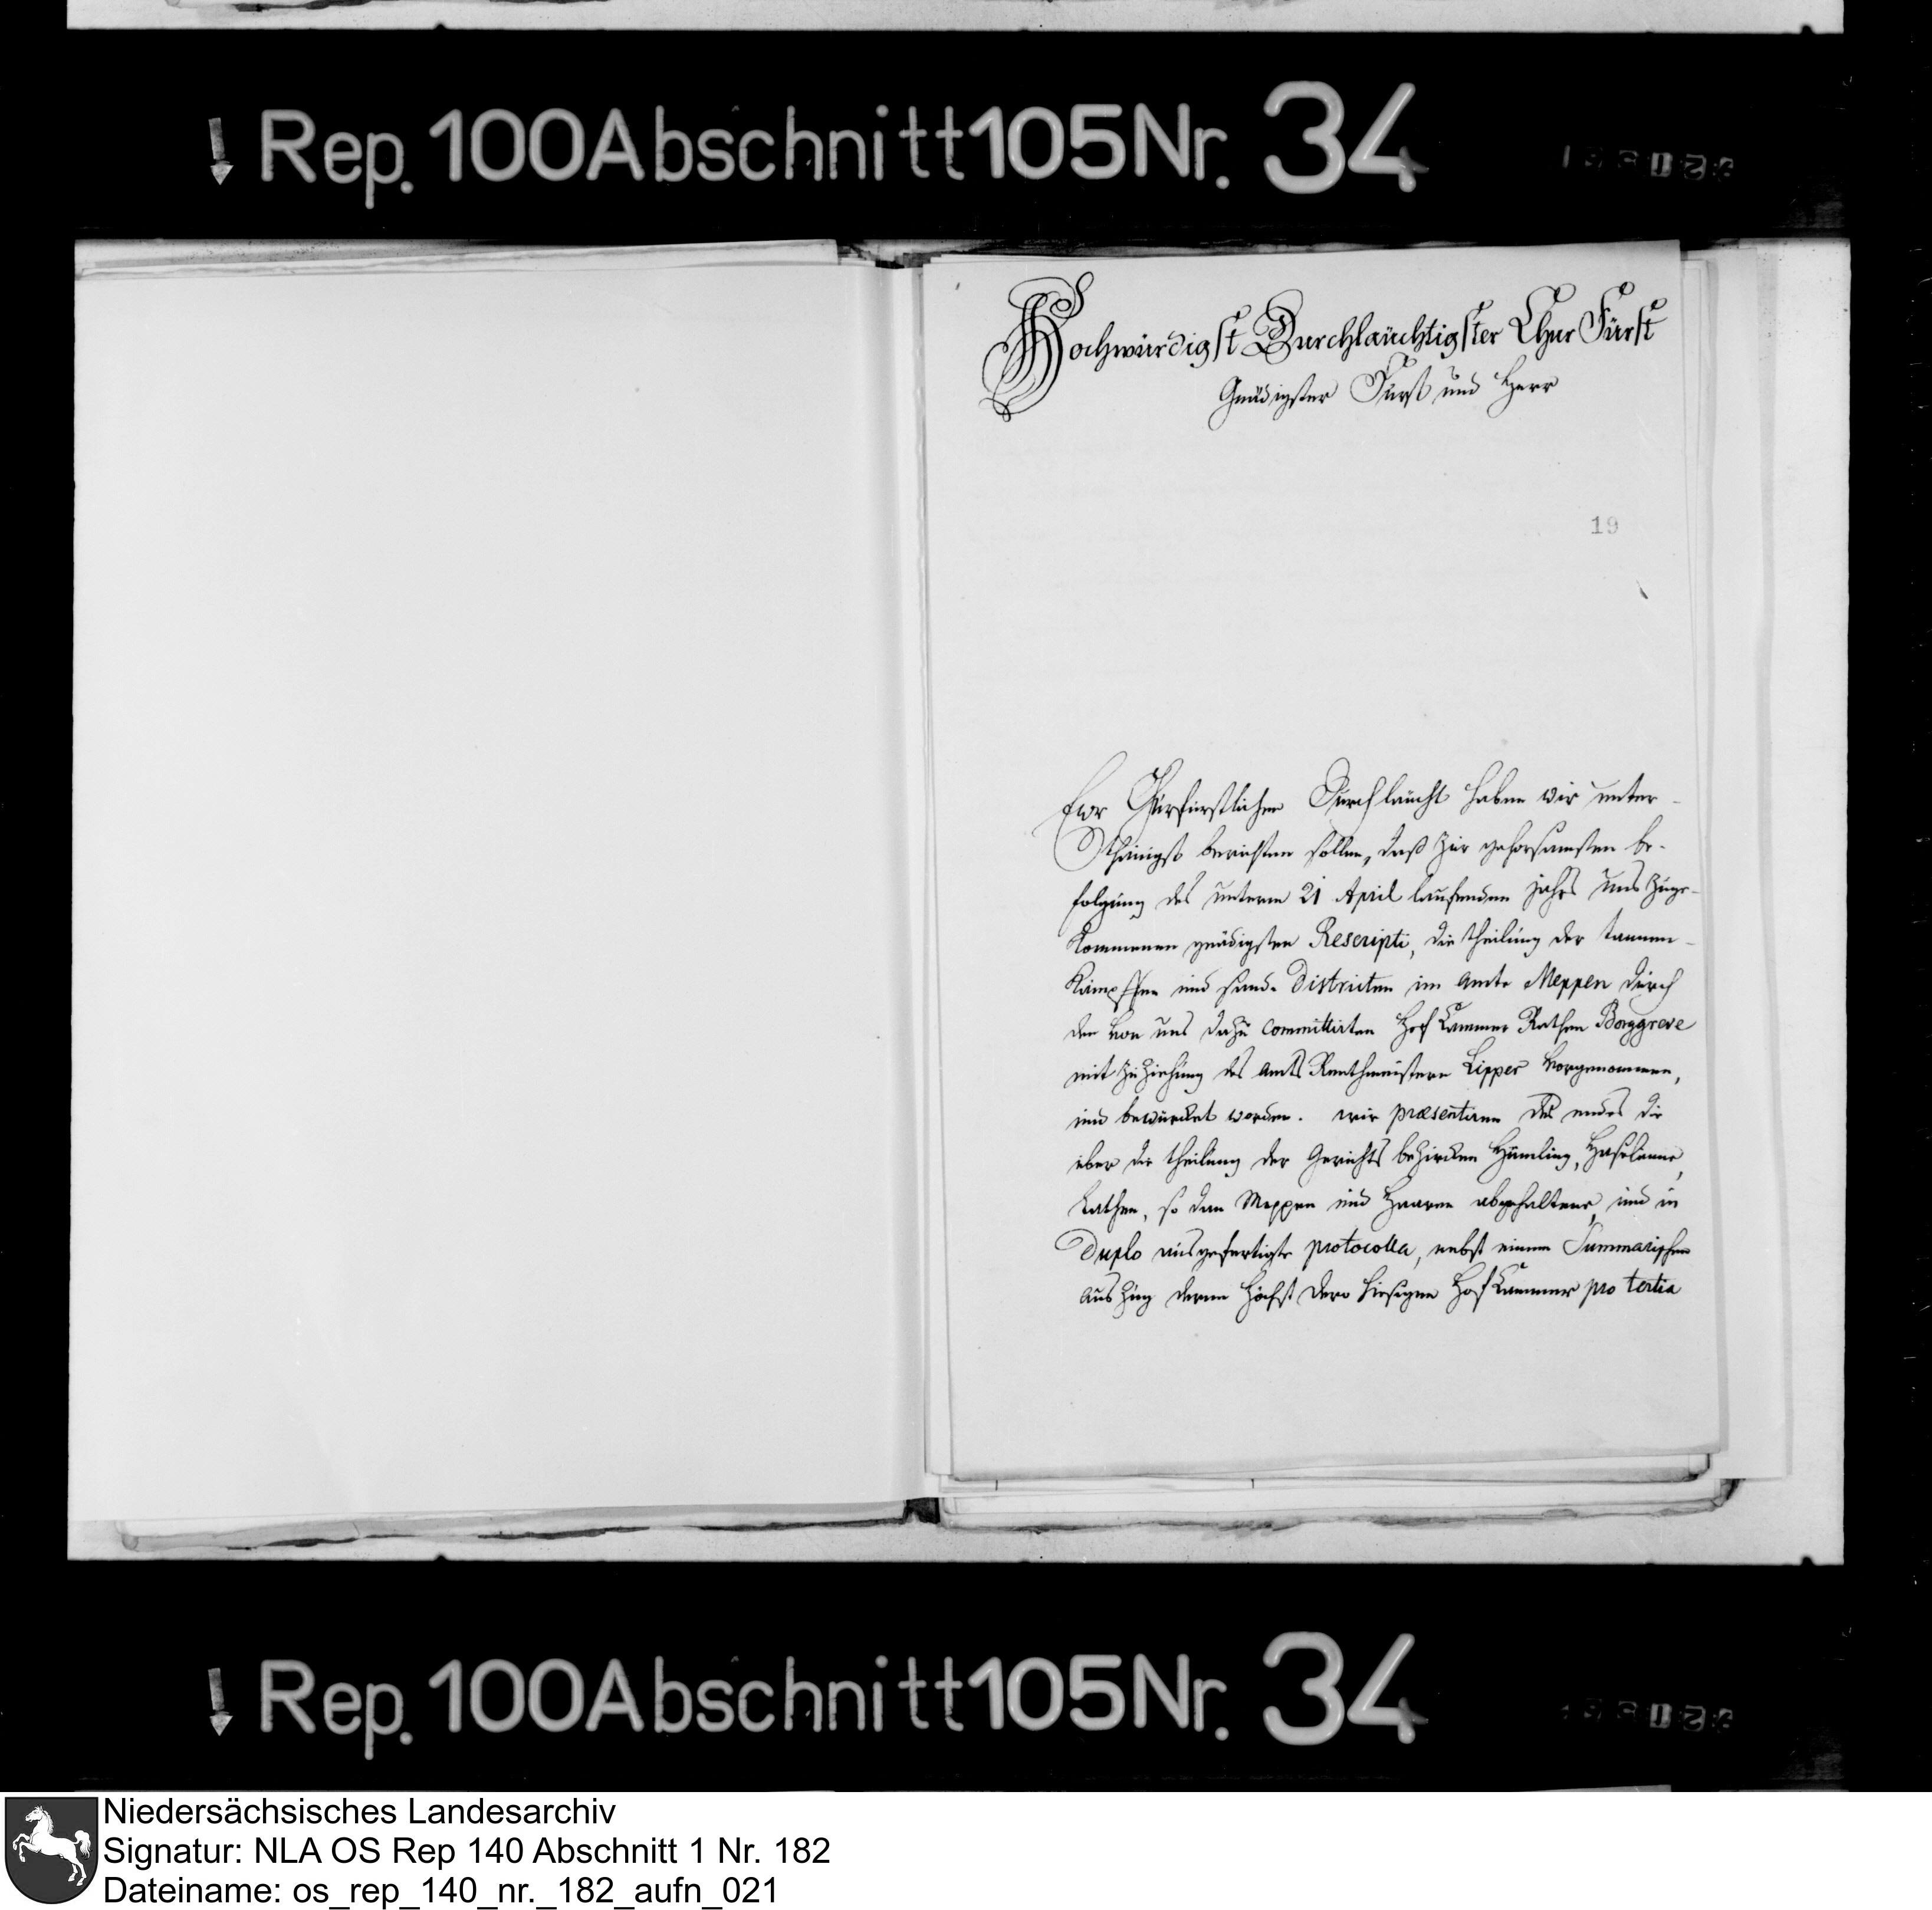 Rep. 100 Abschnitt 105 Nr. 34
Hochwürdigst Durchläuchtigster Chur Fürst
Gnädigster Fürst und Herr
19
Ewr Churfürstlichen Durchlaücht haben wir unter-
thänigst berichten sollen, daß zur gehorsamsten be-
folgung des unterm 21 April laufenden jahrs uns zuge-
kommenen gnädigsten Rescripti, die theilung der tannen-
Kämpffen und sand-Districten im Amte Meppen durch
den von uns dazu committirten Hof Cammer Rathen Borggreve
mit zuziehung des Amts Renthmeistern Lipper vorgenommen,
und bewürcket worden. wir præsentiren des endes die
über die theilung der Gerichts bezircken Hümling, Haselünne,
Lathen, so dan Meppen und Haaren abgehaltene, und in
Duplo ausgefertigte protocolla, nebst einem Summarischen
auszug deren höchst dero hiesigen Hof Cammer pro tertia
Rep. 100 Abschnitt 105 Nr. 34
Niedersächsisches Landesarchiv
Signatur: NLA OS Rep 140 Abschnitt 1 Nr. 182
Dateiname: os_rep_140_nr._182_aufn_021